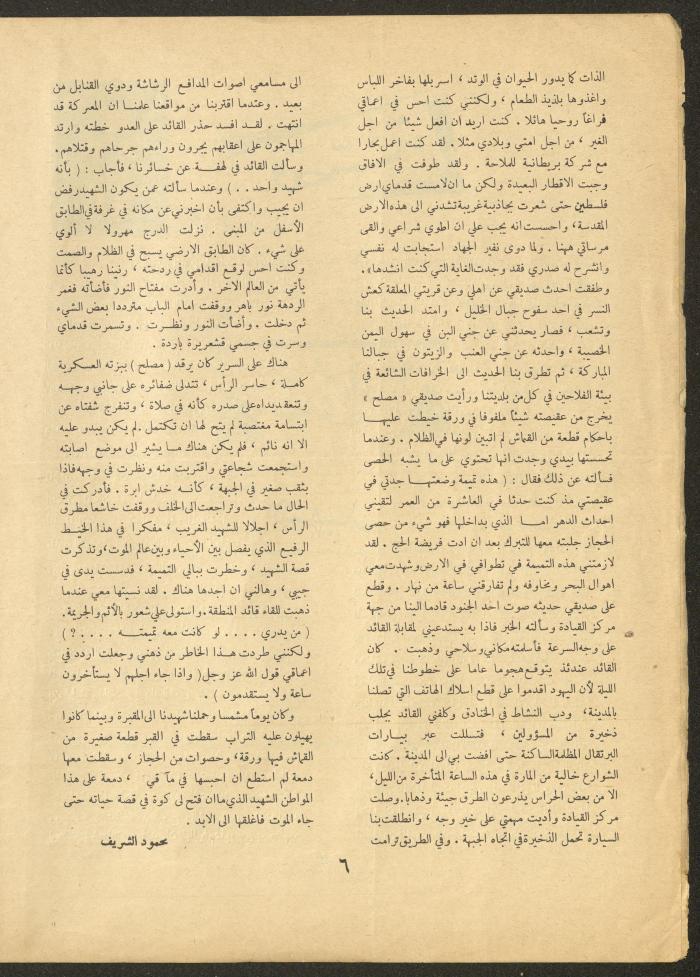 الذات كما يدور الحيوان في الوتد ، اسربلها بفاخر اللباس
واغذوها بلذيذ الطعام ، ولكنني كنت احس في اعماقي
فراغاً روحيا هائلا . كنت اريد ان افعل شيئا من اجل
الغير ، من اجل امتي وبلادي مثلا . لقد كنت اعمل بحارا
مع شركة بريطانية للملاحة . ولقد طوفت في الافاق
وجبت الاقطار البعيدة ولكن ما ان لامست قدماي ارض
فلسطين حتى شعرت بجاذبية غريبة تشدني الى هذه الارض
المقدسة ، واحسست انه يجب علي ان اطوي شراعي والقى
مرساتي ههنا . ولما دوى نفير الجهاد استجابت له نفسي
وانشرح له صدري فقد وجدت الغاية التي كنت انشدها».
وطفقت احدث صديقي عن اهلي وعن قريتي المعلقة كعش
النسر في احد سفوح جبال الخليل ، وامتد الحديث بنا
وتشعب ، فصار يحدثني عن جني البن في سهول اليمن
الخصيبة ، واحدثه عن جني العنب والزيتون في جبالنا
المباركة ، ثم تطرق بنا الحديث الى الخرافات الشائعة في
بيئة الفلاحين في كل من بلديتنا ورأيت صديقي « مصلح »
يخرج من عقيصته شيئاً ملفوفا في ورقة خيطت عليهـا
باحكام قطعة من القماش لم اتبين لونها في الظلام . وعندما
تحسستها بيدي وجدت انها تحتوي على ما يشبه الحصى
فسألته عن ذلك فقال : ( هذه تميمة وضعتهـا جدتي في
عقيصتي مذ كنت حدثا في العاشرة من العمر لتقيني
احداث الدهر امـا الذي بداخلها فهو شيء من حصى
الحجاز جلبته معها للتبرك بعد ان ادت فريضة الحج . لقد
لازمتني هذه التميمة في تطوافي في الارض وشهدت معي
اهوال البحر ومخاوفه ولم تفارقني ساعة من نهار . وقطع
على صديقي حديثه صوت احد الجنود قادما الينا من جهة
مركز القيادة وسألته الخبر فاذا به يستدعيني لمقابلة القائد
على وجه السرعة فأسلمته مكاني وسلاحي وذهبت . كان
القائد عندئذ يتوقع هجوما عاما على خطوطنا في تلك
الليلة لأن اليهود اقدموا على قطع اسلاك الهاتف التي تصلنا
بالمدينة، ودب النشاط في الخنادق وكلفني القائد بجلب
ذخيرة من المسؤولين ، فتسللت عبر بيــارات
البرتقال المظلمة الساكنة حتى افضت بي الى المدينة . كانت
الشوارع خالية من المارة في هذه الساعة المتأخرة من الليل،
الا من بعض الحراس يذرعون الطرق جيئة وذهابا. وصلت
مركز القيادة وأديت مهمتي على خير وجه ، وانطلقت بنا
السيارة تحمل الذخيرة في اتجاه الجبهة . وفي الطريق ترامت
الى مسامعي اصوات المدافع الرشاشة ودوي القنابل من
بعيد . وعندما اقتربنا من مواقعنا علمنـا ان المعركة قد
انتهت . لقـد افسد حذر القائد على العدو خطته وارتد
المهاجمون على اعقابهم يجرون وراءهم جرحاهم وقتلاهم.
وسألت القائد في لهفـة عن خسائرنا ، فأجاب : ( بأنه
شهيد واحد . . ) وعندما سألته عمن يكون الشهيد رفض
ان يجيب واكتفى بأن اخبرني عن مكانه في غرفة في الطابق
الأسفل من المبنى . نزلت الدرج مهرولا لا ألوي
على شيء . كان الطابق الارضي يسبح في الظلام والصمت
وكنت احس لوقـع اقدامي في ردهته ، رنينا رهيبا كأنما
يأتي من العالم الاخر . وأدرت مفتاح النور فأضأته فغمر
الردهة نور باهر ووقفت امام الباب مترددا بعض الشيء
ثم دخلت . وأضأت النور ونظرت . وتسمرت قدماي
وسرت في جسمي قشعريرة باردة .
هناك على السرير كان يرقد ( مصلح ) ببزته العسكرية
كاملـة ، حاسر الرأس ، تتدلى ضفائره على جانبي وجهـه
وتنعقد يداه على صدره كأنه في صلاة ، وتنفرج شفتاه عن
ابتسامة مغتصبة لم يتح لها ان تكتمل . لم يكن يبدو عليه
الا انه نائم ، فلم يكن هناك مـا يشير الى موضع اصابته
واستجمعت شجاعتي واقتربت منه ونظرت في وجهه فاذا
بثقب صغير في الجبهة ، كأنـه خدش ابرة . فأدركت في
الحال ما حدث وتراجعت الى الخلف ووقفت خاشعا مطرق
الرأس ، اجلالا للشهيد الغريب ، مفكرا في هذا الخيـط
الرفيـع الذي يفصل بين الأحياء وبين عالم الموت، وتذكرت
قصة الشهيد ، وخطرت ببالي التميمة ، فدسست يدى في
جيبي ، وهالني ان اجدها هناك . لقد نسيتها معي عندما
ذهبت للقاء قائد المنطقة. واستولى علي شعور بالأثم والجريمة.
( من يدري . . . . لو كانت معه تميمتـــه . . . . ؟ )
ولكنني طردت هـذا الخاطر من ذهني وجعلت اردد في
اعماقي قول الله عز وجل ( واذا جاء اجلهم لا يستأخرون
ساعة ولا يستقدمون ) .
وكان يوماً مشمسا وحملنا شهيدنا الى المقبرة وبينما كانوا
يهيلون عليه التراب سقطت في القبر قطعة صغيرة من
القماش فيها ورقة، وحصوات من الحجاز ، وسقطت معها
دمعة لم استطع ان احبسها في مآ قي ، دمعة على هذا
المواطن الشهيد الذي ما ان فتح لى كوة في قصة حياته حتى
جاء الموت فاغلقها الى الابد .
محمود الشريف
٦